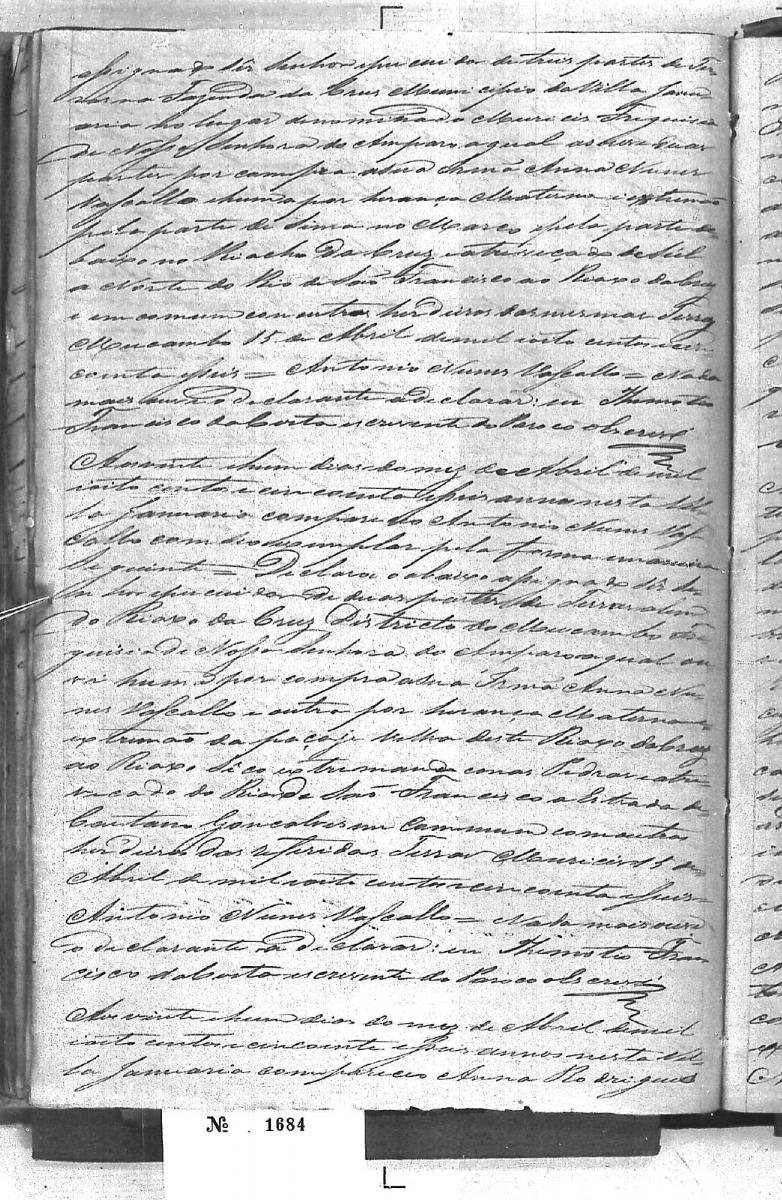 assignado ser senhor epucuidor de treis partes de Ter
ras na Fazenda da Cruz Municipio da Villa Janu
aria no lugar denominado Muricis Freguisia
de Nossa Senhora do Amparo a qual as houve duas
partes por compra a sua Irmã Anna Nunes
Vascallo e huma por herança Materna e extremão
pela parte de Sima no Março e pela parte de
baixo no Riacho da Cruz e atravecado de Sul
a Norte do Rio de São Francisco ao Riaxo da Cruz
e em comum con outros herdeiros das mesmas Terras
Mucambo 15 de Abril de mil oito centos e cin
coenta e seis = Antonio Nunes Vascallo = Nada
mais ouve o declarante a declarar: eu Thimotio
Francisco da Costa escrevente do Paroco o escrevi
Aos vinte e hum dias do mez de Abril de mil
oito centos e cincoenta e seis annos nesta Vil
la Januaria compareceo Antonio Nunes Vas
callo com dois exemplar pela forma e maneira
Seguinte = Declara o abaixo assignado ser se
nhor epucuidor de duas partes de Terras alem
do Riaxo da Cruz Districto do Mucambo Fre
guisia de Nossa Senhora do Amparo a qual ou
ve huma por compra a sua Irmã Anna Nu
nes Vascallo e outra por herança Materna e
extremão da paçage Velha deste Riaxo da Cruz
ao Riaxo Sêco extremando con as Pedras e atra
vecado do Rio de São Francisco a Estrada de
Caetano Gonçalves em commun com outros
herdeiros das referidas Terras Muricis 15 de
Abril de mil oito centos e cin coenta e seis =
Antonio Nunes Vascallo = Nada mais ouve
o declarante a declarar: eu Thimotio Fran
cisco da Costa escrevente do Paroco o Escrevi
Aos vinte e hum dias do mez de Abril de mil
oito centos e cincoenta e seis annos nesta Vil
la Januaria compareceo Anna Rodrigues
Nº 1684